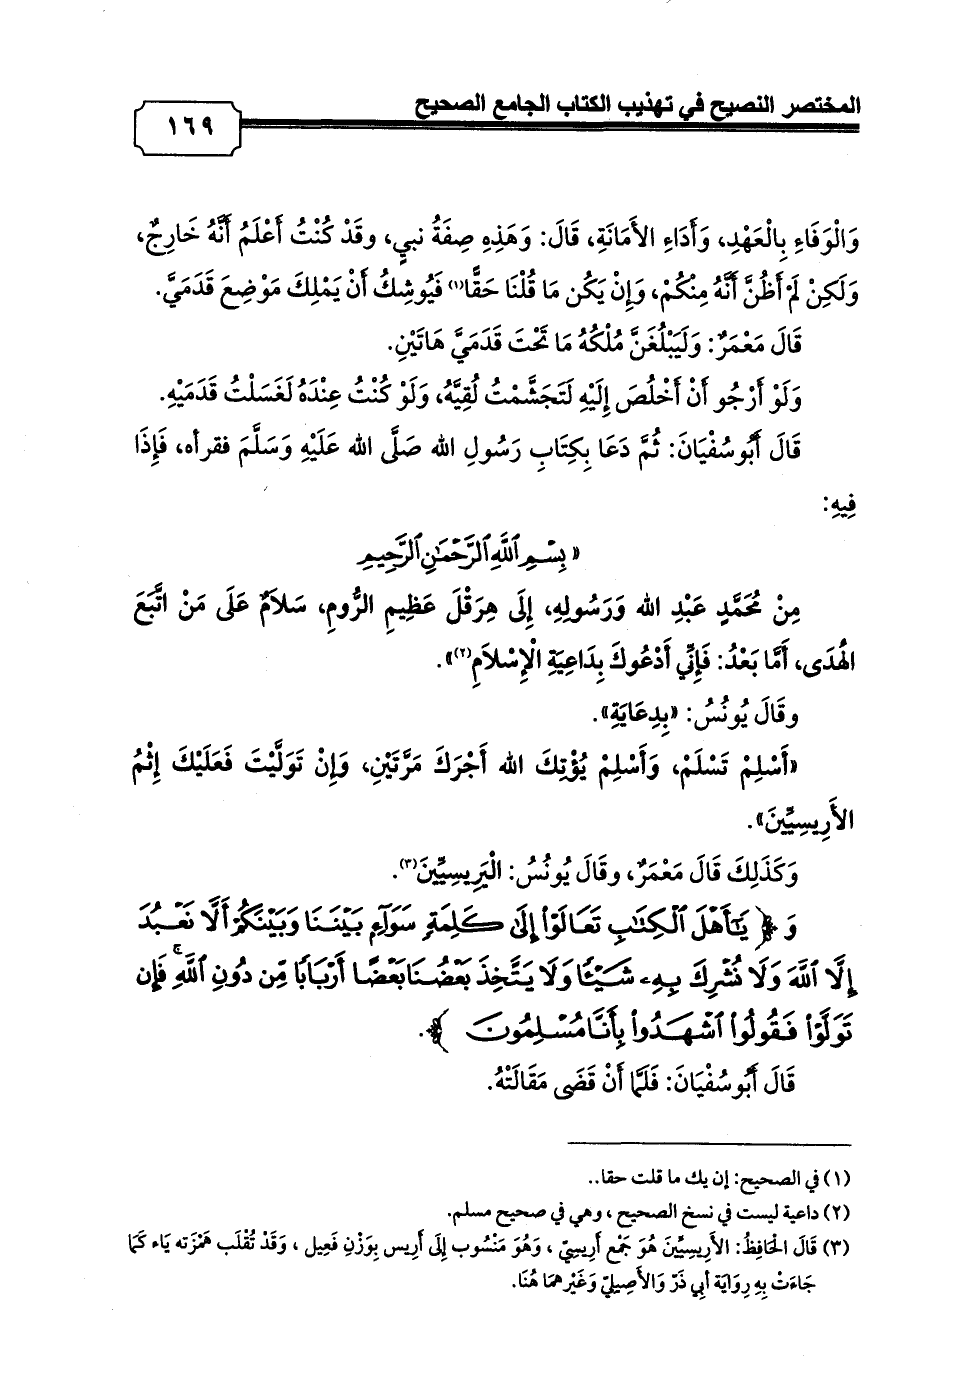 المختصر النصيح في تهذيب الكتاب الجامع الصحيح
١٦٩
وَالْوَفَاءِ بِالْعَهْدِ، وَأَدَاءِ الأَمَانَةِ، قَالَ: وَهَذِهِ صِفَةُ نبيٍ، وقَدْ كُنْتُ أَعْلَمُ أَنَّهُ خَارِجٌ،
وَلَكِنْ لَمْ أَظُنَّ أَنَّهُ مِنْكُمْ، وَإِنْ يَكُن مَا قُلْنَا حَقًّا(١) فَيُوشِكُ أَنْ يَمْلِكَ مَوْضِعَ قَدَمَيَّ.
قَالَ مَعْمَرٌ: وَلَيَبْلُغَنَّ مُلْكُهُ مَا تَحْتَ قَدَمَيَّ هَاتَيْنِ.
وَلَوْ أَرْجُو أَنْ أَخْلُصَ إِلَيْهِ لَتَجَشَّمْتُ لُقِيَّهُ، وَلَوْ كُنْتُ عِنْدَهُ لَغَسَلْتُ قَدَمَيْهِ.
قَالَ أَبُوسُفْيَانَ: ثُمَّ دَعَا بِكِتَابِ رَسُولِ الله صَلَّى الله عَلَيْهِ وَسَلَّمَ فقرأه، فَإِذَا
فِيهِ:
«بِسْمِ ٱللَّهِ ٱلرَّحْمَٰنِ ٱلرَّحِيمِ
مِنْ مُحَمَّدٍ عَبْدِ الله وَرَسُولِهِ، إِلَى هِرَقْلَ عَظِيمِ الرُّومِ، سَلاَمٌ عَلَى مَنْ اتَّبَعَ
الْهُدَى، أَمَّا بَعْدُ: فَإِنِّي أَدْعُوكَ بِدَاعِيَةِ الْإِسْلاَمِ(٢)».
وقَالَ يُونُسُ: «بِدِعَايَةِ».
«أَسْلِمْ تَسْلَمْ، وَأَسْلِمْ يُؤْتِكَ الله أَجْرَكَ مَرَّتَيْنِ، وَإِنْ تَوَلَّيْتَ فَعَلَيْكَ إِثْمُ
الأَرِيسِيِّينَ».
وَكَذَلِكَ قَالَ مَعْمَرٌ، وقَالَ يُونُسُ: الْيَرِيسِيِّينَ(٣).
وَ ﴿ يَٰٓأَهْلَ ٱلْكِتَٰبِ تَعَالَوْا۟ إِلَىٰ كَلِمَةٍ سَوَآءٍۭ بَيْنَنَا وَبَيْنَكُمْ أَلَّا نَعْبُدَ
إِلَّا ٱللَّهَ وَلَا نُشْرِكَ بِهِۦ شَيْـًٔا وَلَا يَتَّخِذَ بَعْضُنَا بَعْضًا أَرْبَابًا مِّن دُونِ ٱللَّهِ ۚ فَإِن
تَوَلَّوْا۟ فَقُولُوا۟ ٱشْهَدُوا۟ بِأَنَّا مُسْلِمُونَ ﴾.
قَالَ أَبُوسُفْيَانَ: فَلَمَّا أَنْ قَضَى مَقَالَتَهُ.
(١) في الصحيح: إن يك ما قلت حقا..
(٢) داعية ليست في نسخ الصحيح ، وهي في صحيح مسلم.
(٣) قَالَ الْحَافِظُ: الأَرِيسِيِّينَ هُوَ جَمْع أَرِيسِيّ ، وَهُوَ مَنْسُوب إِلَى أَرِيس بِوَزْنِ فَعِيل ، وَقَدْ تُقْلَب هَمْزَته يَاء كَمَا
جَاءَتْ بِهِ رِوَايَة أَبِي ذَرّ وَالأَصِيلِيّ وَغَيْرهمَا هُنَا.